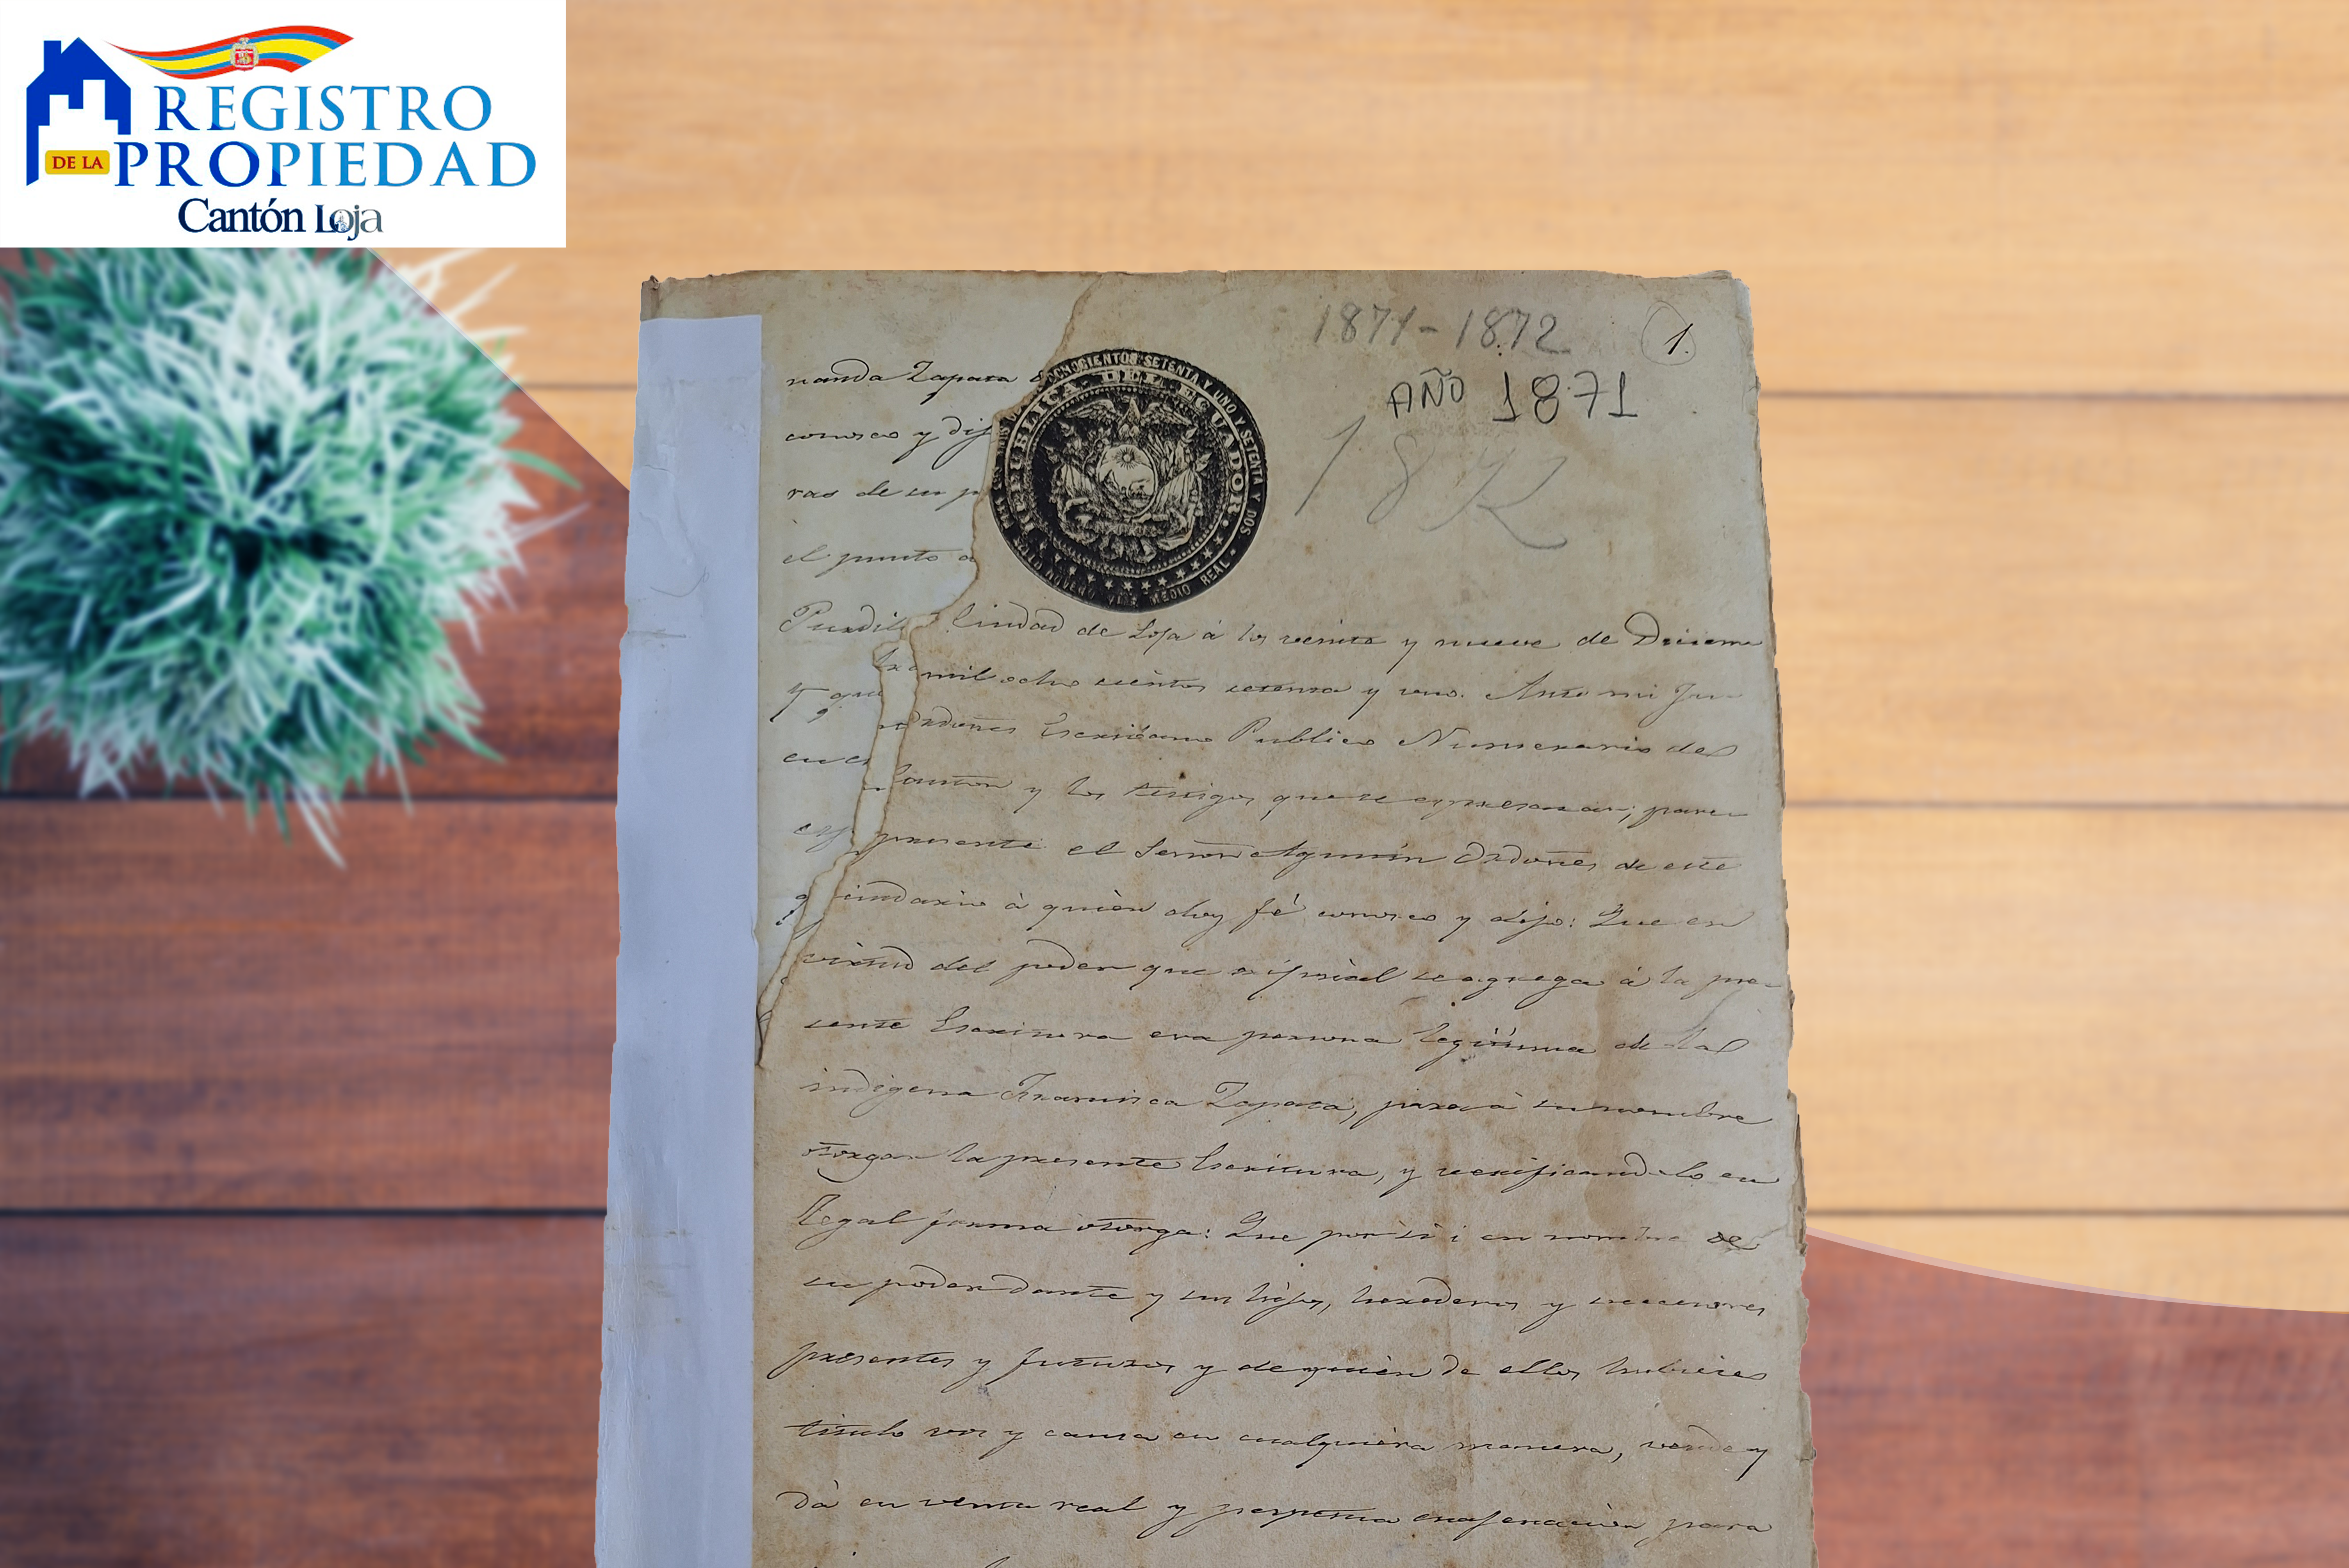 REGISTRO
DE LA PROPIEDAD
Cantón Loja
1871-1872
1.
AÑO 1871
18
nanda Zapata
conosco y dij
ras de su p
el punto
OCHOCIENTOS SETENTA Y UNO Y SETENTA Y DOS
REPUBLICA DEL ECUADOR
NOVENO VALE MEDIO REAL
Ciudad de Loja á los veinte y nueve de Diciem
mil ocho cientos setenta y uno. Ante mi Ju
y que
ordoñes Escribano Publico Numerario del
en e
Canton y los testigos que se expresaran; pare
presente el Señor Agustin Ordoñes de este
cindario à quièn doy fé conosco y dijo: Que en
virtud del poder que original se agrega á la pre
sente Escritura era persona legitima de la
indigena Francisca Zapata, para à su nombre
otorgar la presente Escritura, y verificandolo en
legal forma otorga: Que por sì i en nombre de
su poderdante y sus hijos, herederos y succesores
presentes y futuros y de quièn de ellos hubiere
titulo vos y causa en cualquièra manera, vende y
dà en venta real y perpetua enajenaciòn para